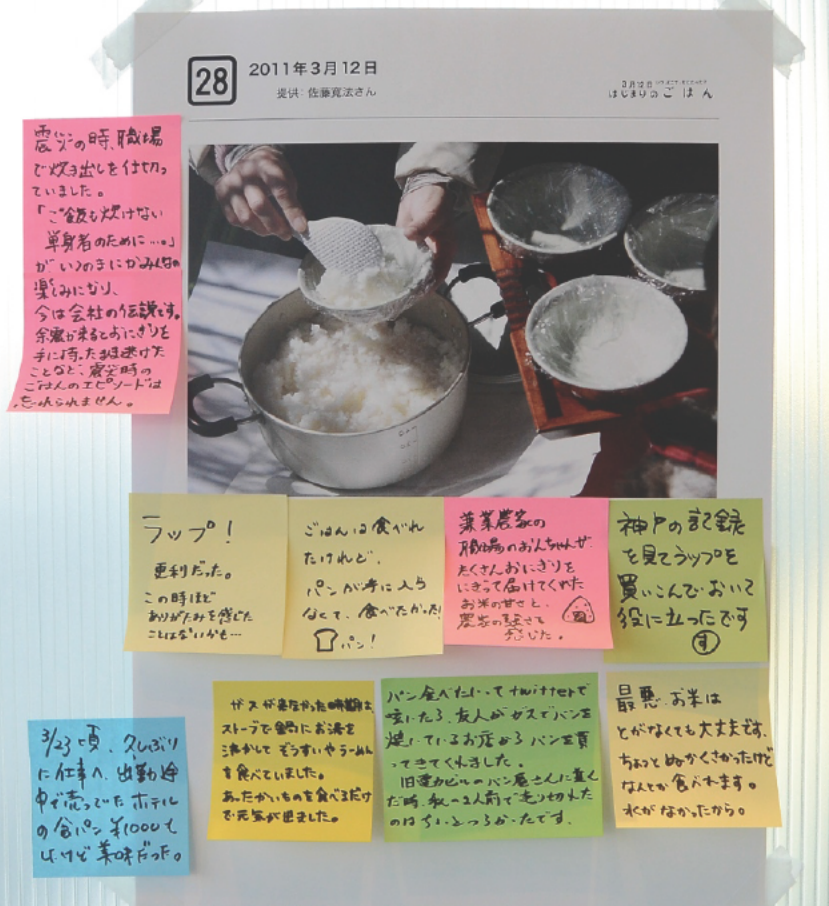 28
2011年3月12日
提供：佐藤寛法さん
3月12日
はじまりのごはん
震災の時、職場
で炊き出しを仕切っ
ていました。
「ご飯も炊けない
単身者のために…。」
がいつのまにかみんなの
楽しみになり、
今は会社の伝説です。
余震が来るとおにぎりを
手に持ったまま逃げた
ことなど、震災時の
ごはんのエピソードは
忘れられません。
ラップ！
便利だった。
この時ほど
ありがたみを感じた
ことはないかも…
ごはんは食べれ
たけれど、
パンが手に入ら
なくて、食べたかった!
パン！
兼業農家の
職場のおんちゃんが
たくさんおにぎりを
にぎって届けてくれた
お米の甘さと、
農家の強さを
感じた。
神戸の記録
を見てラップを
買いこんでおいて
役に立ったです
す
3/23頃、久しぶり
に仕事へ、出勤途
中で売ってたホテル
の食パン ¥1000も
したけど美味だった。
ガスが来なかった時期は、
ストーブで鍋にお湯を
沸かして ぞうすいやらーめん
を食べていました。
あったかいものを食べるだけ
で元気が出ました。
パン食べたいってtwitterで
呟いたら、友人がガスでパンを
焼いているお店からパンを買
ってきてくれました。
旧電力ビルのパン屋さんに並ん
だ時、私の2人前で売り切れた
のはちょっとつらかったです。
最悪、お米は
とがなくても大丈夫です、
ちょっとぬかくさかったけど
なんとか食べれます。
水がなかったから。